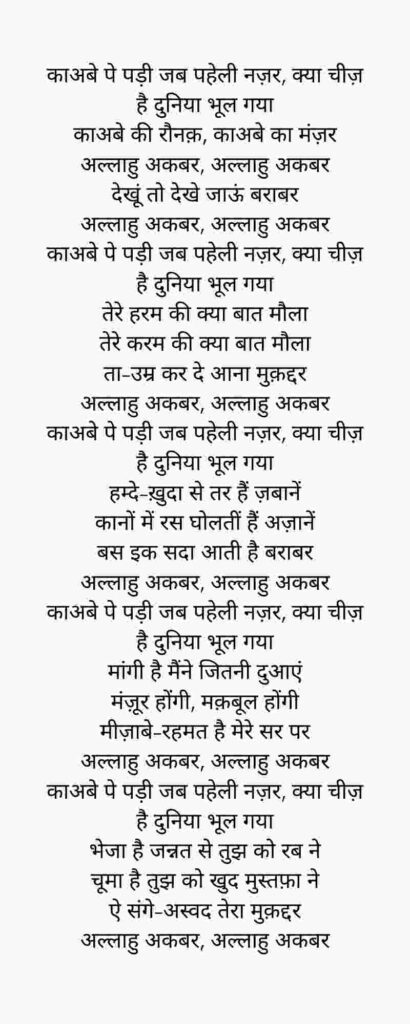 काअबे पे पड़ी जब पहेली नज़र, क्या चीज़
है दुनिया भूल गया
काअबे की रौनक़, काअबे का मंज़र
अल्लाहु अकबर, अल्लाहु अकबर
देखूं तो देखे जाऊं बराबर
अल्लाहु अकबर, अल्लाहु अकबर
काअबे पे पड़ी जब पहेली नज़र, क्या चीज़
है दुनिया भूल गया
तेरे हरम की क्या बात मौला
तेरे करम की क्या बात मौला
ता-उम्र कर दे आना मुक़द्दर
अल्लाहु अकबर, अल्लाहु अकबर
काअबे पे पड़ी जब पहेली नज़र, क्या चीज़
है दुनिया भूल गया
हम्दे-ख़ुदा से तर हैं ज़बानें
कानों में रस घोलतीं हैं अज़ानें
बस इक सदा आती है बराबर
अल्लाहु अकबर, अल्लाहु अकबर
काअबे पे पड़ी जब पहेली नज़र, क्या चीज़
है दुनिया भूल गया
मांगी है मैंने जितनी दुआएं
मंज़ूर होंगी, मक़बूल होंगी
मीज़ाबे-रहमत है मेरे सर पर
अल्लाहु अकबर, अल्लाहु अकबर
काअबे पे पड़ी जब पहेली नज़र, क्या चीज़
है दुनिया भूल गया
भेजा है जन्नत से तुझ को रब ने
चूमा है तुझ को खुद मुस्तफ़ा ने
ऐ संगे-अस्वद तेरा मुक़द्दर
अल्लाहु अकबर, अल्लाहु अकबर